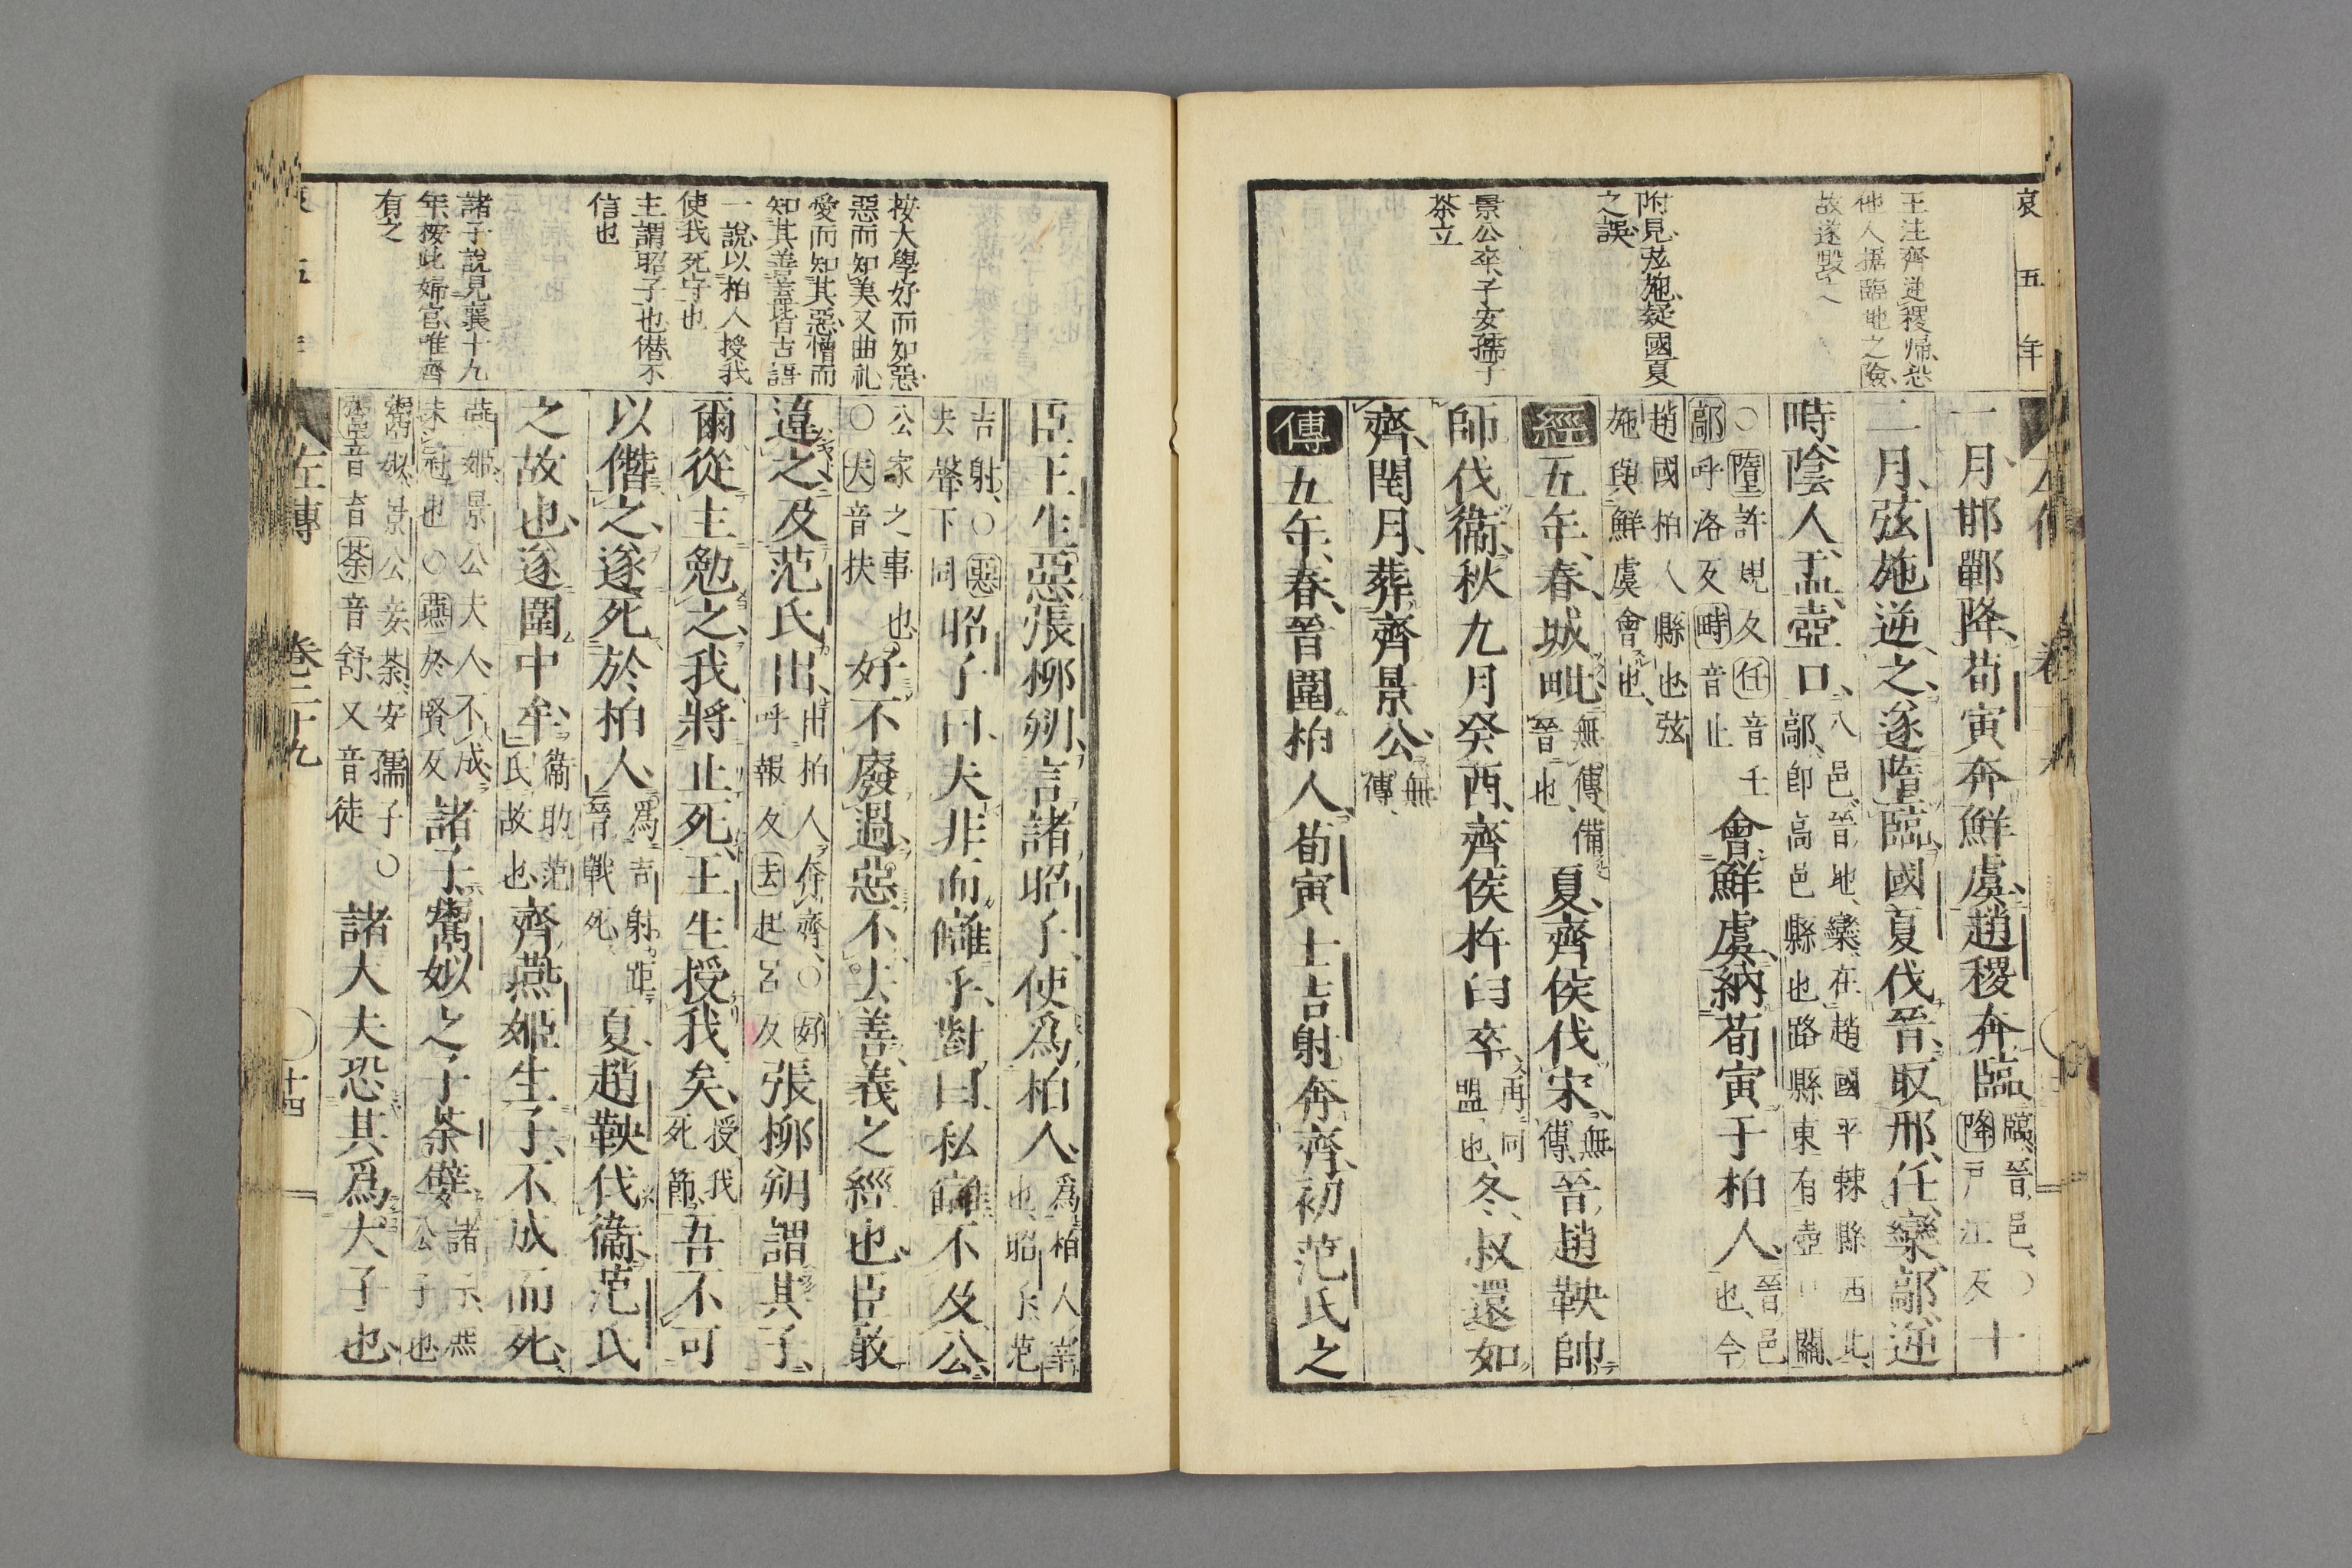 哀五年
王注齊逆稷帰恐
他人據臨地之險
故遂毀之
附見弦施疑國夏
之誤
景公卒子安孺子
荼立
一月邯鄲降荀寅奔鮮虞趙稷奔臨臨晉邑○降戸江反十
二月弦施逆之遂墮臨國夏伐晉取邢任欒鄗逆
時陰人盂壺口八邑晉地欒在趙國平棘縣西北鄗即高邑縣也路縣東有壺口關
○墮許規反任音壬鄗呼洛反畤音止會鮮虞納荀寅于柏人晉邑也今
趙國柏人縣也弦施與鮮虞會也
經五年春城毗無傳備晉也夏齊侯伐宋無傳晉趙鞅帥
師伐衞秋九月癸酉齊侯杵臼卒再同盟也冬叔還如
齊閏月葬齊景公無傳
傳五年春晉圍柏人荀寅士吉射奔齊初范氏之
按大學好而知惡
惡而知美又曲礼
愛而知其惡憎而
知其善蓋皆古語
一說以柏人授我
使我死守也
主謂昭子也僣不
信也
諸子說見襄十九
年按此婦官唯齊
有之
臣王生惡張柳朔言諸昭子使爲柏人爲柏人宰也昭子范
吉射○惡去聲下同昭子曰夫非而讎乎對曰私讎不及公
公家之事也○夫音扶好不廢過惡不去善義之經也臣敢
違之及范氏出出柏人奔齊○好呼報反去起呂反張柳朔謂其子
爾從主勉之我將止死王生授我矣授我死節吾不可
以僭之遂死於柏人爲吉射距晉戰死夏趙鞅伐衞范氏
之故也遂圍中牟衞助范氏故也齊燕姬生子不成而死
燕姬景公夫人不成未冠也○燕於賢反諸子鬻姒之子荼嬖諸子燕公子也
鬻姒景公妾荼安孺子○鬻音育荼音舒又音徒諸大夫恐其爲大子也
左傳 卷二十九 十四